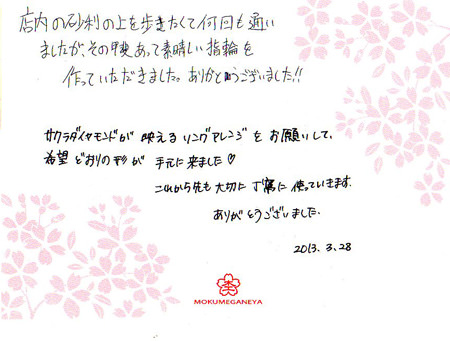 店内の砂利の上を歩きたくて何回も通い
ましたが、その甲斐あって素晴しい指輪を
作っていただきました。ありがとうございました!!
サクラダイヤモンドが映えるリングアレンジをお願いして、
希望どおりの形が手元に来ました♡
これから先も大切に丁寧に使っていきます。
ありがとうございました。
2013.3.28
MOKUMEGANEYA